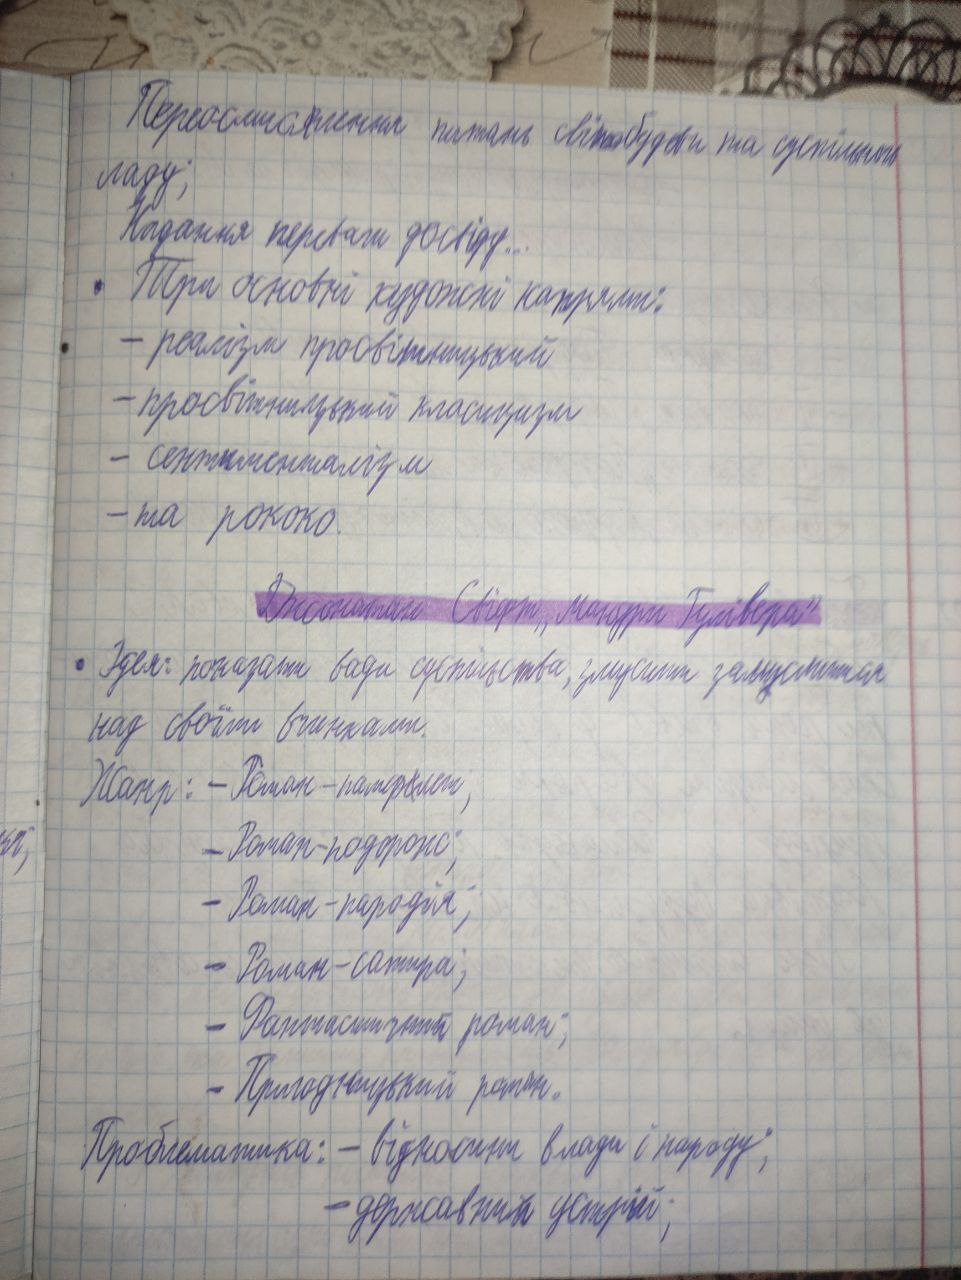 Переосмислення питань світобудови та суспільного
ладу;
Надання переваги досвіду...
• Три основні художні напрями:
- реалізм просвітницький
- просвітницький класицизм
- сентименталізм
- та рококо.
Джонатан Свіфт „Мандри Гулівера"
• Ідея: показати вади суспільства, змусити замислитися
над своїми вчинками.
Жанр: - Роман-памфлет;
- Роман-подорож;
- Роман-пародія;
- Роман-сатира;
- Фантастичний роман;
- Пригодницький роман.
Проблематика: - відносини влади і народу;
- державний устрій;